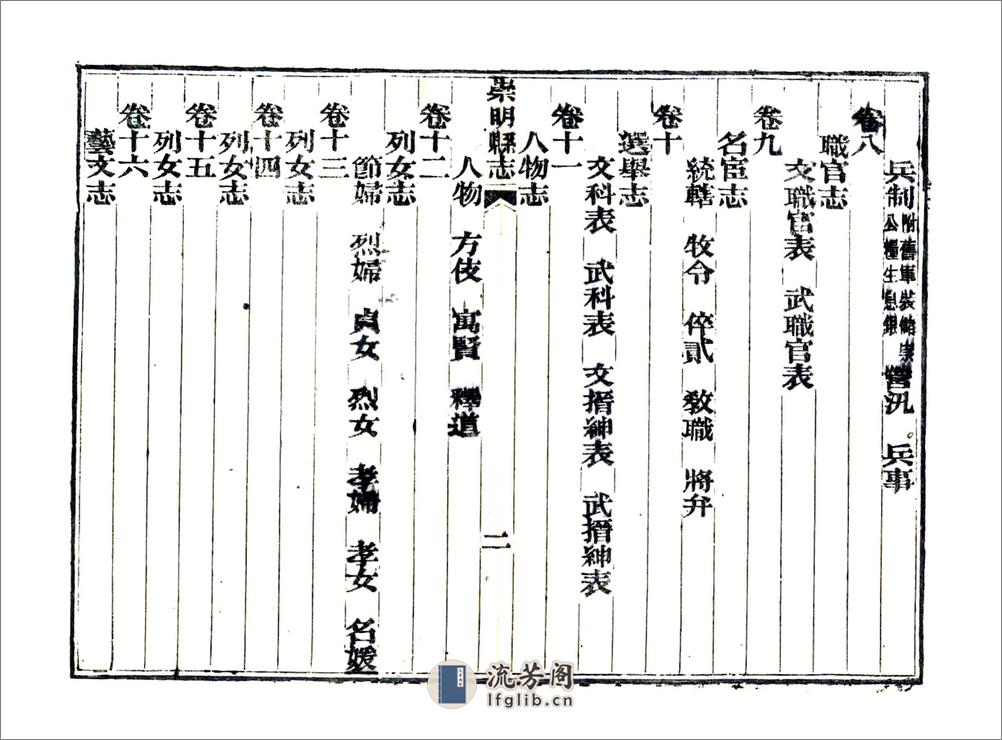 兵制 附舊軍裝 公糧生息銀 營汛 兵事
卷八
職官志
文職官表 武職官表
卷九
名宦志
統轄 牧令 倅貳 敎職 將弁
卷十
選舉志
文科表 武科表 文搢紳表 武搢紳表
卷十一
人物志
崇明縣志 二
人物 方伎 寓賢 釋道
卷十二
列女志
節婦 烈婦 貞女 烈女 孝婦 孝女 名媛
卷十三
列女志
卷十四
列女志
卷十五
列女志
卷十六
藝文志
流芳阁
lfglib.cn